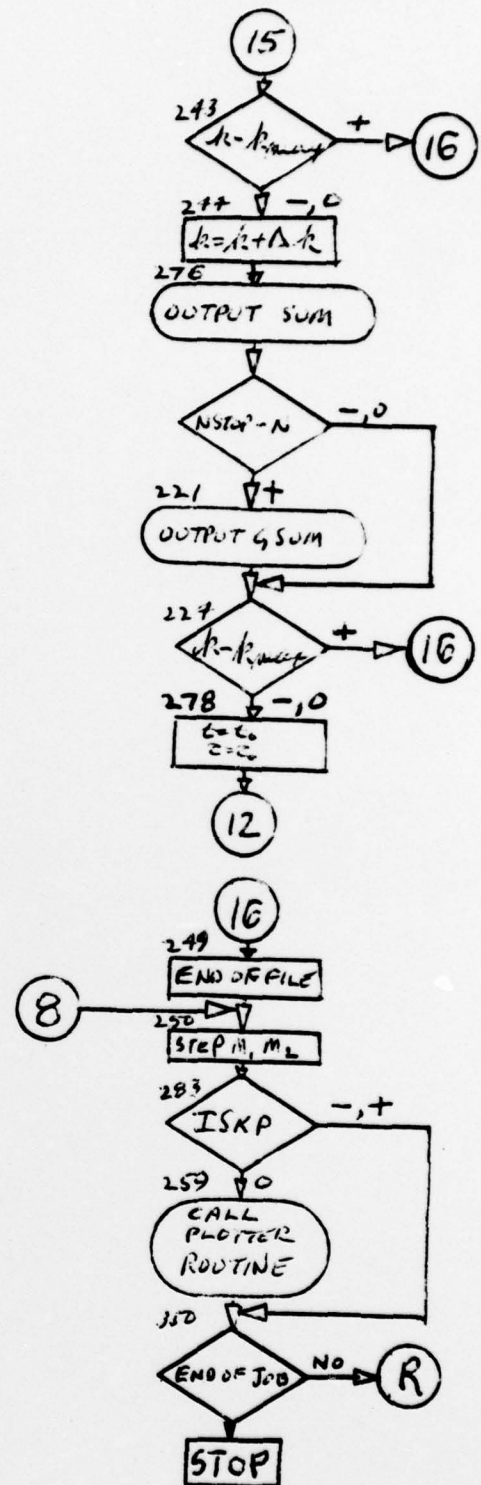 15
243
k-kmax
+
16
244
-,0
k=k+Δk
276
OUTPUT SUM
NSTOP-N
-,0
221
+
OUTPUT G SUM
227
k-kmax
+
16
278
-,0
t=t₀
τ=τ₀
12
16
249
END OF FILE
8
250
STEP M₁ M₂
283
ISKP
-,+
259
0
CALL
PLOTTER
ROUTINE
350
END OF JOB
NO
R
STOP